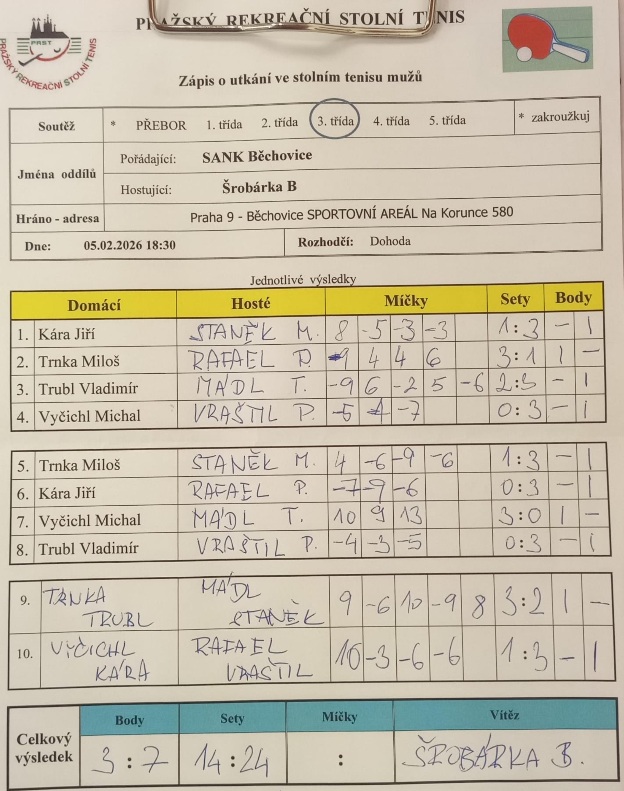 PRAŽSKÝ REKREAČNÍ STOLNÍ TENIS
PRST
PRAŽSKÝ REKREAČNÍ STOLNÍ TENIS
Zápis o utkání ve stolním tenisu mužů
Soutěž * PŘEBOR 1. třída 2. třída 3. třída 4. třída 5. třída * zakroužkuj
Jména oddílů
Pořádající: SANK Běchovice
Hostující: Šrobárka B
Hráno - adresa Praha 9 - Běchovice SPORTOVNÍ AREÁL Na Korunce 580
Dne: 05.02.2026 18:30 Rozhodčí: Dohoda
Jednotlivé výsledky
Domácí Hosté Míčky Sety Body
1. Kára Jiří STANĚK M. 8 -5 -3 -3 1:3 - 1
2. Trnka Miloš RAFAEL P. 4 4 6 3:1 1 -
3. Trubl Vladimír MÁDL T. -9 6 -2 5 -6 2:3 - 1
4. Vyčichl Michal VRAŠTIL P. -7 0:3 - 1
5. Trnka Miloš STANĚK M. 4 -6 -9 -6 1:3 - 1
6. Kára Jiří RAFAEL P. -7 -9 -6 0:3 - 1
7. Vyčichl Michal MÁDL T. 10 9 13 3:0 1 -
8. Trubl Vladimír VRAŠTIL P. -4 -3 -5 0:3 - 1
9. TRNKA MÁDL 9 -6 10 -9 8 3:2 1 -
TRUBL STANĚK
10. VYČICHL RAFAEL 10 -3 -6 -6 1:3 - 1
KÁRA VRAŠTIL
Celkový výsledek
Body Sety Míčky Vítěz
3:7 14:24 : ŠROBÁRKA B.